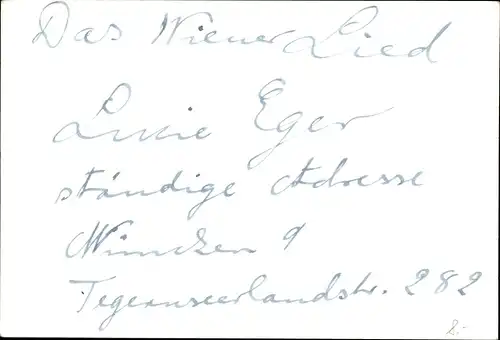 Das Wiener Lied
Lucie Eger
ständige Adresse
München 9
Tegernseerlandstr. 282
2.-